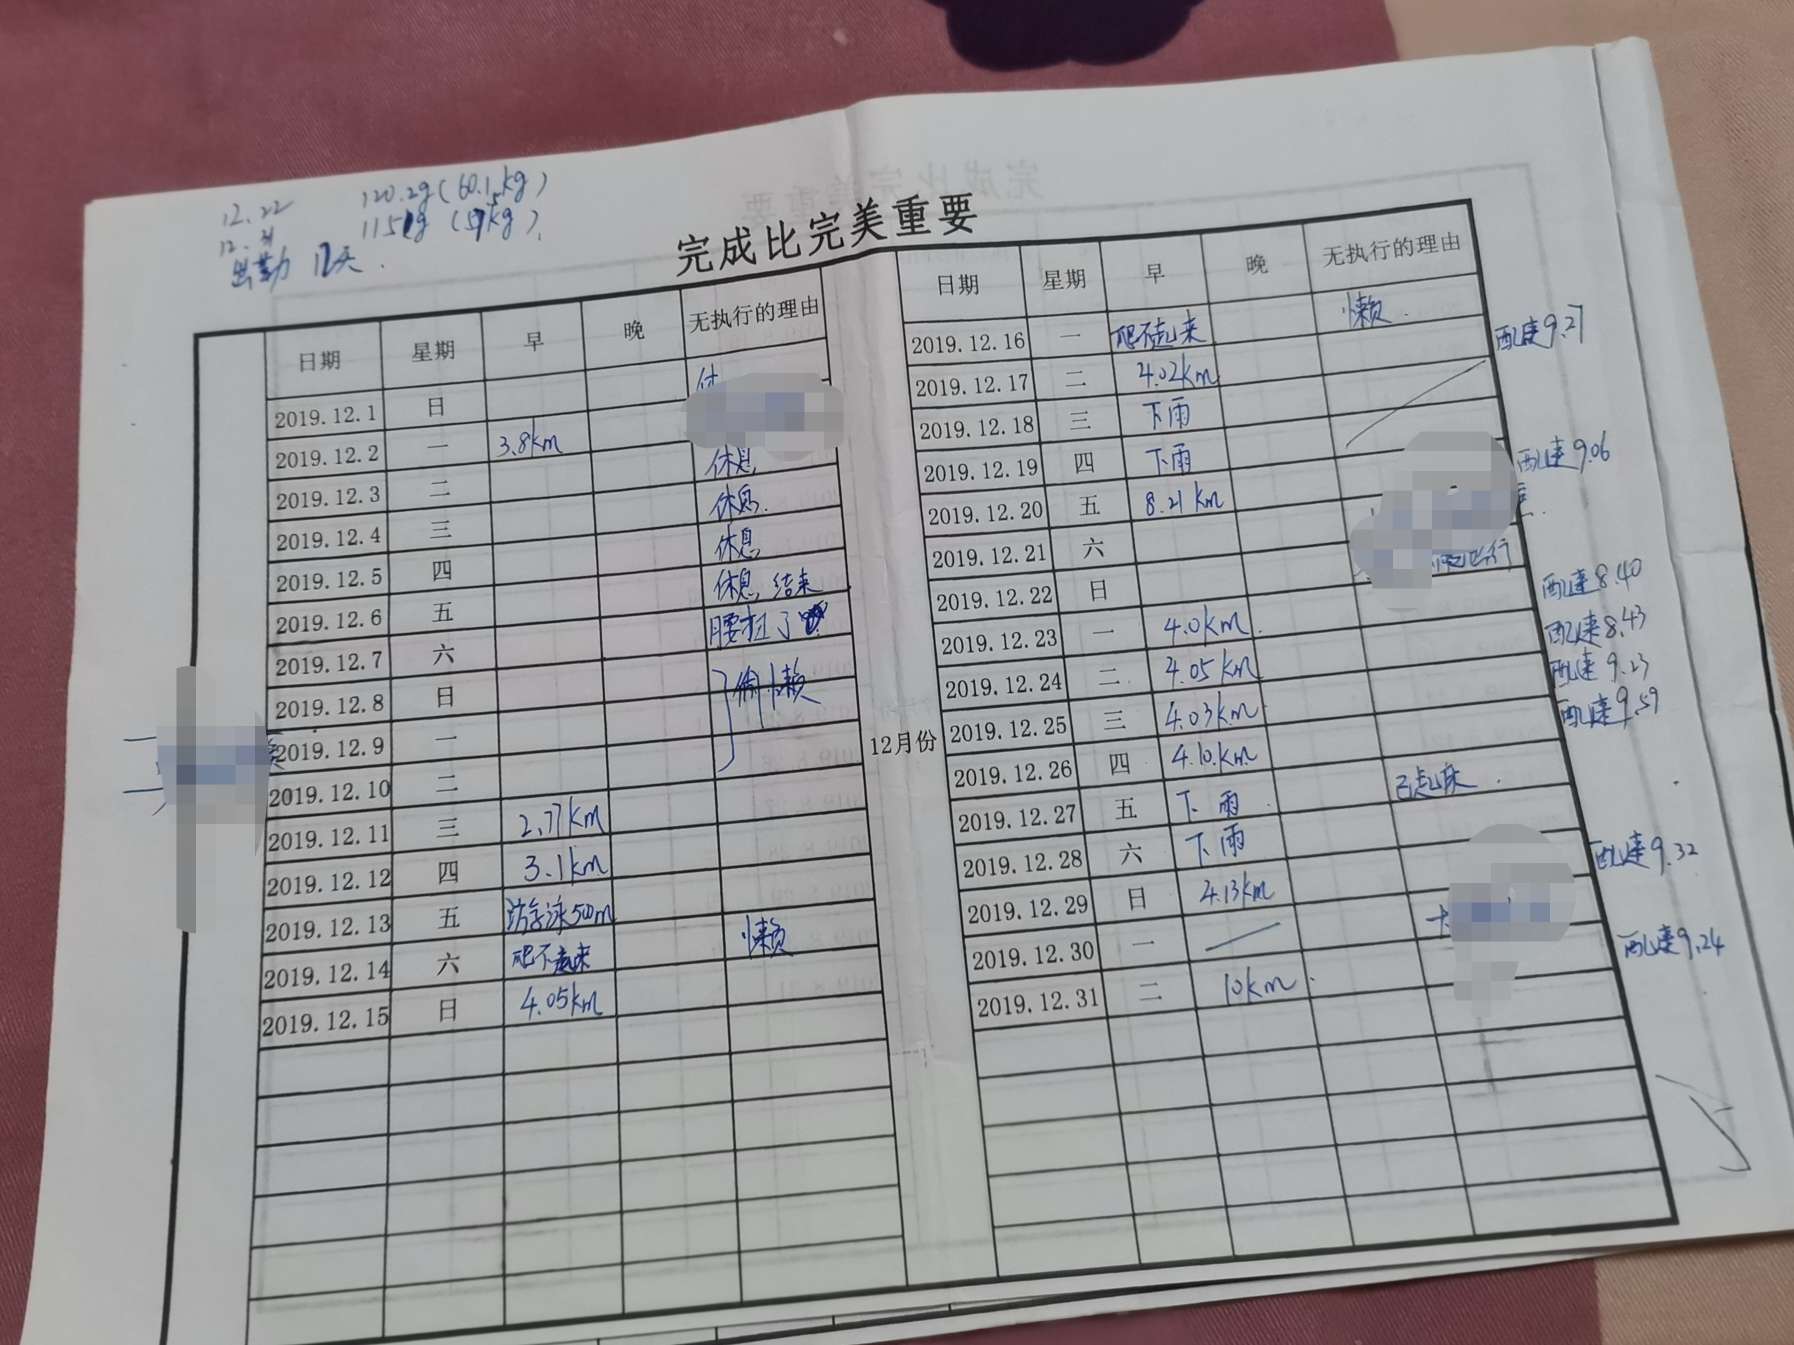 12.22 120.2g(60.1kg)
12.31
出勤 12天.
完成比完美重要
日期 星期 早 晚 无执行的理由
2019.12.1 日 休
2019.12.2 一 3.8km
2019.12.3 二 休息
2019.12.4 三 休息.
2019.12.5 四 休息
2019.12.6 五 休息,结束
2019.12.7 六 腰扭了
2019.12.8 日 偷懒
2019.12.9 一
2019.12.10 二
2019.12.11 三 2.77km
2019.12.12 四 3.1km
2019.12.13 五 游泳500m
2019.12.14 六 爬不起来 懒
2019.12.15 日 4.05km
12月份
日期 星期 早 晚 无执行的理由
2019.12.16 一 爬不起来 懒.
2019.12.17 二 4.02km 配速9.27
2019.12.18 三 下雨
2019.12.19 四 下雨
2019.12.20 五 8.21km 配速9.06
2019.12.21 六
2019.12.22 日
2019.12.23 一 4.0km. 配速8.40
2019.12.24 二 4.05km 配速8.43
2019.12.25 三 4.03km 配速9.23
2019.12.26 四 4.10.km 配速9.59
2019.12.27 五 下雨. 已起床.
2019.12.28 六 下雨
2019.12.29 日 4.13km 配速9.32
2019.12.30 一
2019.12.31 二 10km. 配速9.24